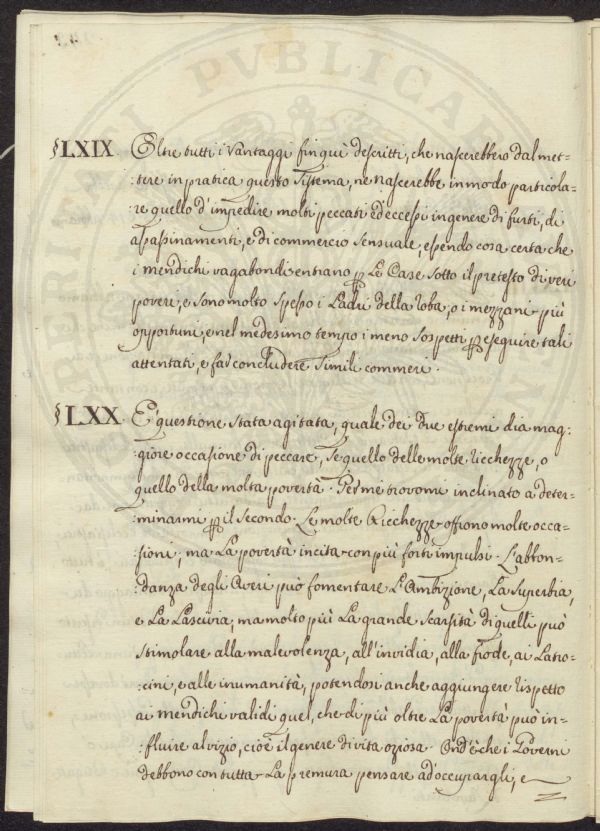 §LXIX Oltre tutti i Vantaggi fin quì descritti, che nascerebbero dal met=
:tere in pratica questo Sistema, ne nascerebbe in modo particola=
:re quello d'impedire molti peccati ed eccessi in genere di furti, di
assassinamenti, e di commercio sensuale, essendo cosa certa che
i mendichi vagabondi entrano p le Case sotto il pretesto di veri
poveri, e sono molto spesso i Ladri della roba, o i mezzani più
opportuni, e nel medesimo tempo i meno sospetti p eseguire tali
attentati, e far concludere simili commerci.
§LXX E' questione stata agitata, quale dei due estremi dia mag=
:giore occasione di peccare, se quello delle molte ricchezze, o
quello della molta povertà. Per me trovomi inclinato a deter=
minarmi p il secondo. Le molte Ricchezze offrono molte occa=
:sioni, ma La povertà incita con più forti impulsi. L'abbon=
:danza degli Averi può fomentare L'Ambizione, La Superbia,
e La Lascivia, ma molto più La grande scarsità di quelli può
stimolare alla malevolenza, all'invidia, alla frode, ai Latro=
:cini, e alle inumanità, potendosi anche aggiungere rispetto
ai mendichi validi quel, che di più oltre La povertà può in=
:fluire al vizio, cioè il genere di vita oziosa. Ond'è che i Governi
debbono con tutta La premura pensare ad occupargli, e